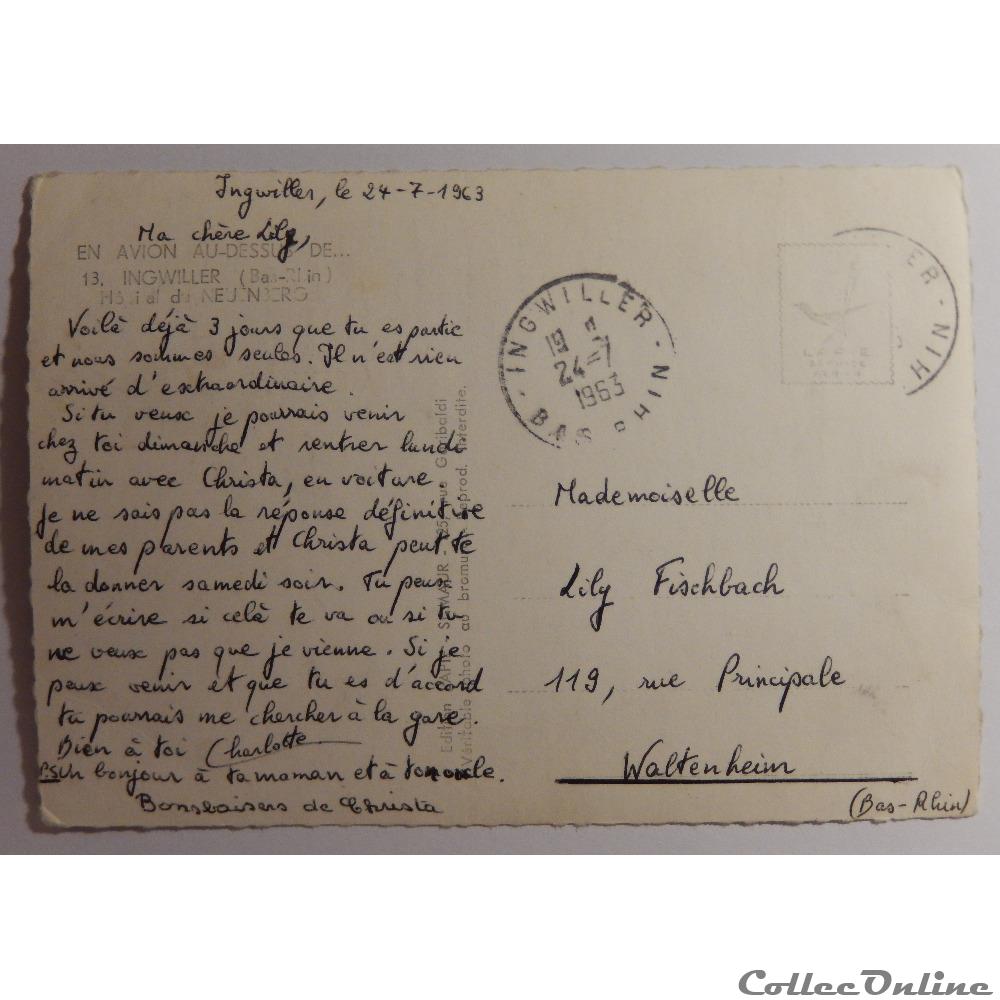 Ingwiller, le 24-7-1963
Ma chère Lily,
EN AVION AU-DESSUS DE...
13. INGWILLER (Bas-Rhin)
Hôpital du NEUENBERG
Voilà déjà 3 jours que tu es partie
et nous sommes seules. Il n'est rien
arrivé d'extraordinaire.
Si tu veux je pourrais venir
chez toi dimanche et rentrer lundi
matin avec Christa, en voiture.
Je ne sais pas la réponse définitive
de mes parents et Christa peut te
la donner samedi soir. Tu peux
m'écrire si celà te va ou si tu
ne veux pas que je vienne. Si je
peux venir et que tu es d'accord
tu pourrais me chercher à la gare.
Bien à toi Charlotte
P.S. Un bonjour à ta maman et à ton oncle.
Bons baisers de Christa
rue Garibaldi
Véritable photo au bromure - Reprod. interdite.
INGWILLER - BAS RHIN
19
24-7
1963
ER - HIN
Mademoiselle
Lily Fischbach
119, rue Principale
Waltenheim
(Bas-Rhin)
CollecOnline